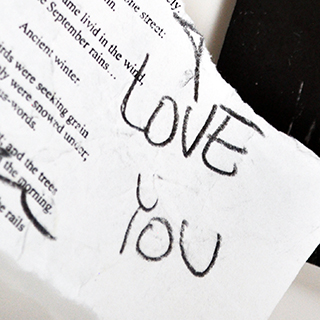 the street:
ame livid in the wind,
e September rains...
Ancient winter
were seeking grain
ly were snowed under,
us-words.
and the trees
the morning.
e rails
I
LOVE
YOU